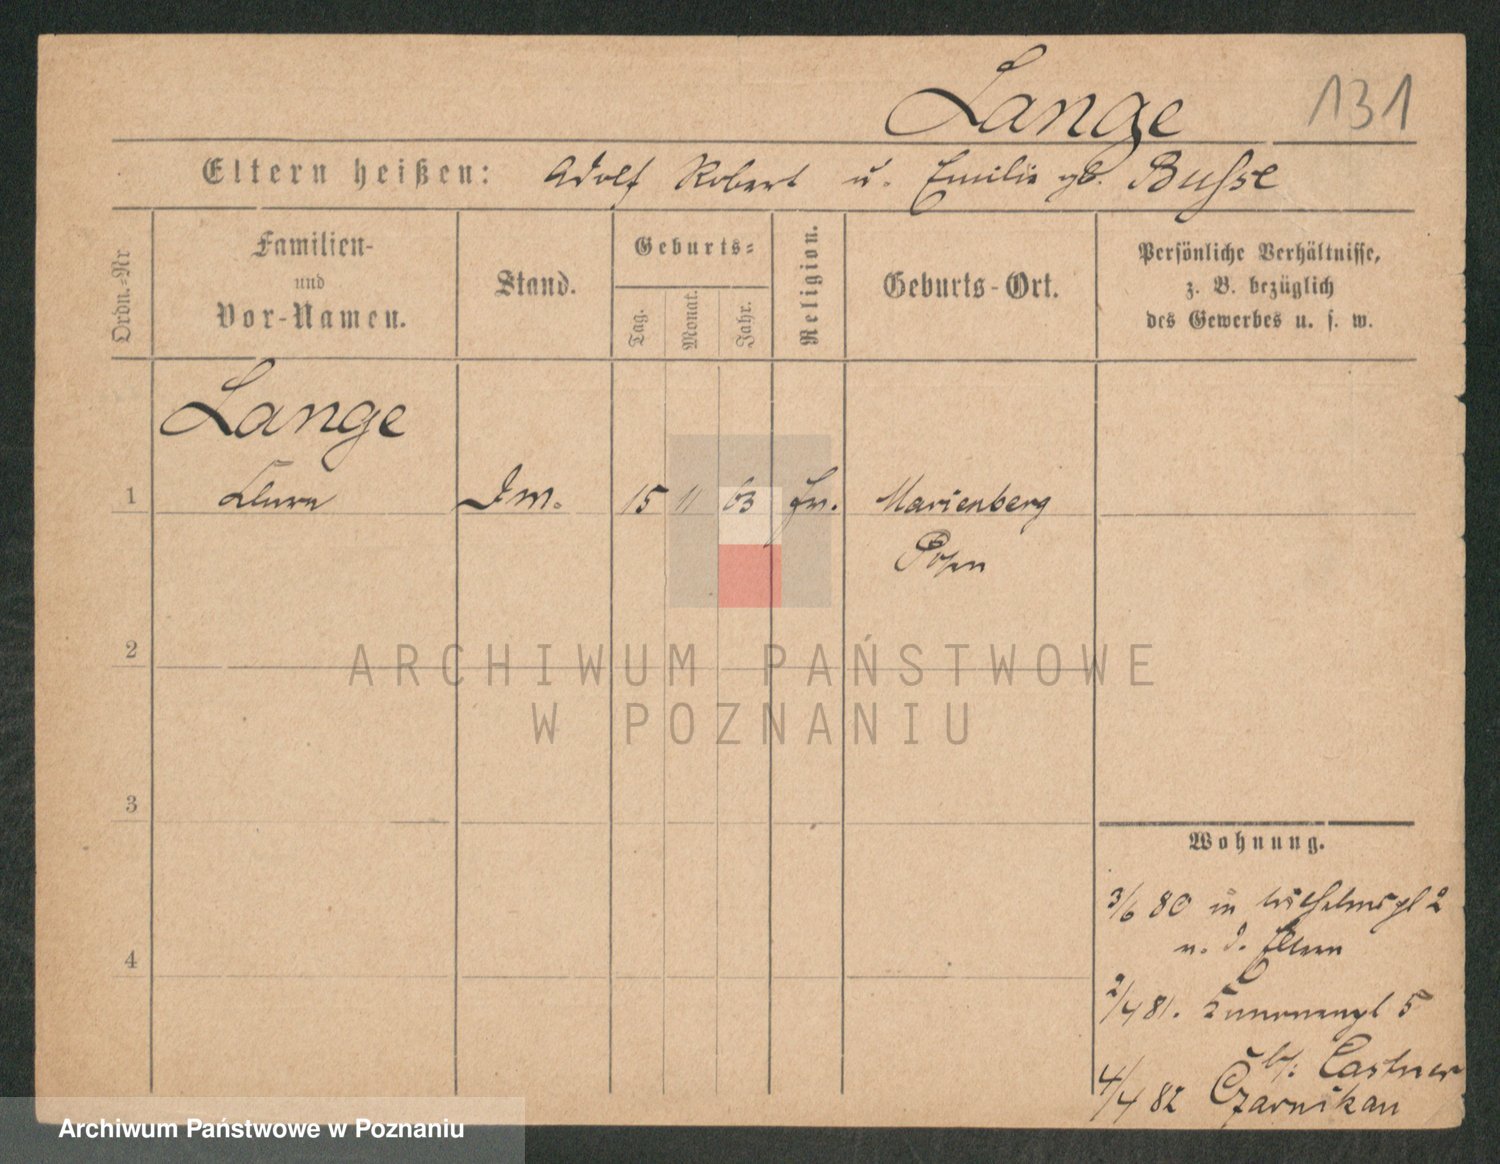 Lange 131
Eltern heißen: Adolf Robert u. Emilie gb. Busse
Ordn.-Nr
Familien-
und
Vor-Namen.
Stand.
Geburts-
Tag.
Monat.
Jahr.
Religion.
Geburts-Ort.
Persönliche Verhältnisse,
z. B. bezüglich
des Gewerbes u. s. w.
Lange
1 15 11 63 Marienberg
Posen
2
ARCHIWUM PAŃSTWOWE
W POZNANIU
3
Wohnung.
3/6 80 Wilhelmspl 2
4 d. Eltern
2/4 81. 5
b/. Castner
4/4 82 Czarnikau
Archiwum Państwowe w Poznaniu